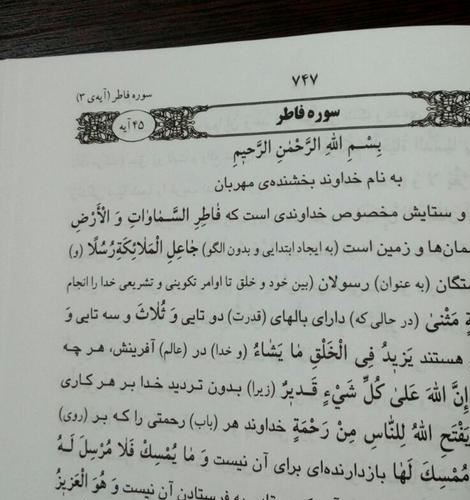 ۷۴۷
سوره فاطر (آیه‌ی ۳)
سوره فاطر
۴۵ آیه
بِسْمِ اللهِ الرَّحْمٰنِ الرَّحِیمِ
به نام خداوند بخشنده‌ی مهربان
و ستایش مخصوص خداوندی است که فَاطِرِ السَّمَاوَاتِ وَ الْأَرْضِ
مان‌ها و زمین است (به ایجاد ابتدایی و بدون الگو) جَاعِلِ الْمَلَائِكَةِ رُسُلًا (و)
ستگان (به عنوان) رسولان (بین خود و خلق تا اوامر تکوینی و تشریعی خدا را انجام
ةٍ مَثْنیٰ (در حالی که) دارای بالهای (قدرت) دو تایی وَ ثُلَاثَ و سه تایی وَ
هستند یَزِیدُ فِی الْخَلْقِ مَا یَشَاءُ (و خدا) در (عالم) آفرینش، هر چه
إِنَّ اللهَ عَلیٰ كُلِّ شَیْءٍ قَدِیرٌ (زیرا) بدون تردید خدا بر هر کاری
یَفْتَحِ اللهُ لِلنَّاسِ مِنْ رَحْمَةٍ خداوند هر (باب) رحمتی را که بر (روی)
مُمْسِكَ لَهَا بازدارنده‌ای برای آن نیست وَ مَا یُمْسِكْ فَلَا مُرْسِلَ لَهُ
به فرستادن آن نیست وَ هُوَ الْعَزِیزُ